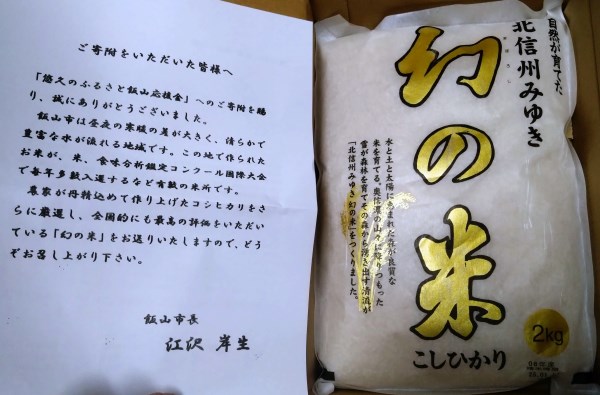 ご寄附をいただいた皆様へ
「悠久のふるさと飯山応援金」へのご寄附を賜
り、誠にありがとうございました。
飯山市は昼夜の寒暖の差が大きく、清らかで
豊富な水が流れる地域です。この地で作られた
お米が、米、食味分析鑑定コンクール国際大会
で毎年多数入選するなど有数の米所です。
農家が丹精込めて作り上げたコシヒカリをさ
らに厳選し、全国的にも最高の評価をいただい
ている「幻の米」をお送りいたしますので、どう
ぞお召し上がり下さい。
飯山市長
江沢 岸生
自然が育てた
北信州みゆき
幻の米
水と土と太陽にめぐまれた森が良質な
米を育てる。奥信濃の山々に降りつもった
雪が森林を育て、その森から湧き出す清流が
「北信州みゆき幻の米」をつくりました。
2kg
こしひかり